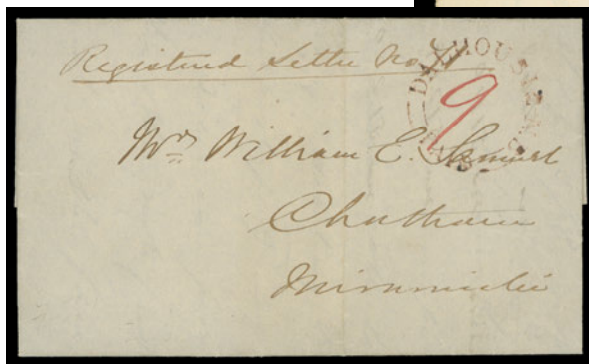 Registered Letter No
DALHOUSIE N.
9
PAID
Mrs William E. Samuel
Chatham
Miramichi